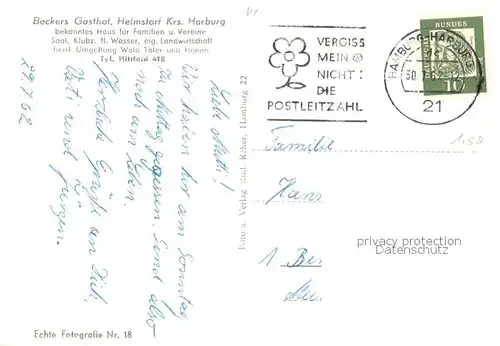 Beckers Gasthof, Helmstorf Krs. Harburg
bekanntes Haus für Familien u. Vereine
Saal, Klubz. fl. Wasser, eig. Landwirtschaft
herrl. Umgebung Wald Täler und Höhen
Tel. Hittfeld 418
29.7.62
Liebe Mutti!
Wir haben hier am Sonntag
zu Mittag gegessen. Sind also
noch am Leben.
Herzliche Grüße an Dich,
Vati und Jürgen.
Echte Fotografie Nr. 18
Foto u. Verlag Rud. Reher, Hamburg 22
VERGISS
MEIN
NICHT!
DIE
POSTLEITZAHL
HAMBURG-HARBURG
30.7.62
21
BUNDES
10
1.50
Familie
Hans
1 Ber
privacy protection
Datenschutz